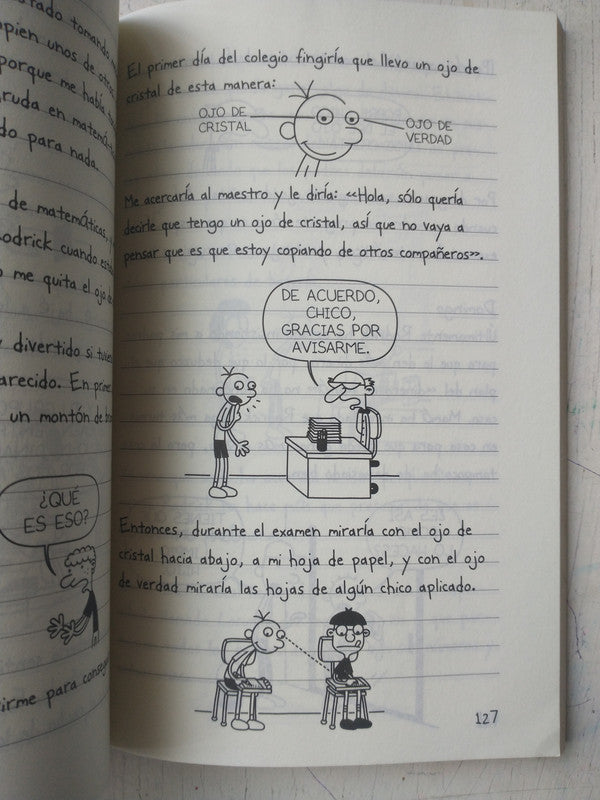 tomando
unos de otros
porque me había
ruda en matemát
do para nada.
de matemáticas
Rodrick cuando
me quita el ojo de
divertido si
arecido. En primer
un montón de
¿QUÉ
ES ESO?
irme para
El primer día del colegio fingiría que llevo un ojo de
cristal de esta manera:
OJO DE
CRISTAL
OJO DE
VERDAD
Me acercaría al maestro y le diría: «Hola, sólo quería
decirle que tengo un ojo de cristal, así que no vaya a
pensar que es que estoy copiando de otros compañeros».
DE ACUERDO,
CHICO,
GRACIAS POR
AVISARME.
Entonces, durante el examen miraría con el ojo de
cristal hacia abajo, a mi hoja de papel, y con el ojo
de verdad miraría las hojas de algún chico aplicado.
127